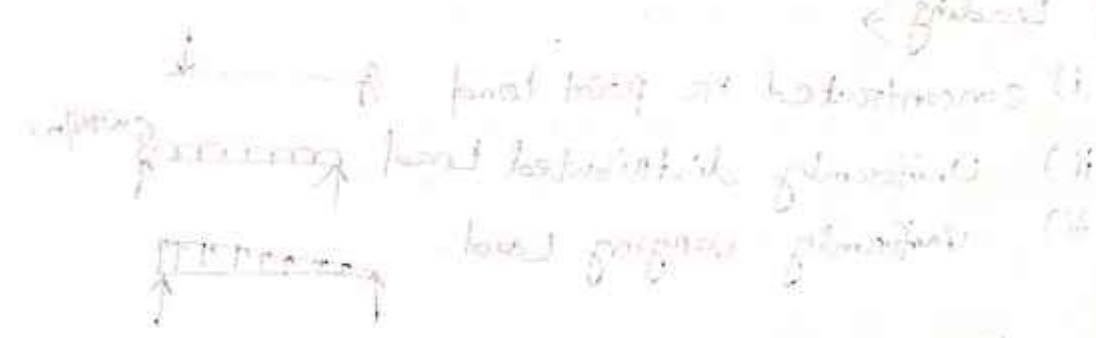 Loading >
i) concentrated or point load
ii) Uniformly distributed Load
iii) Uniformly varying Load